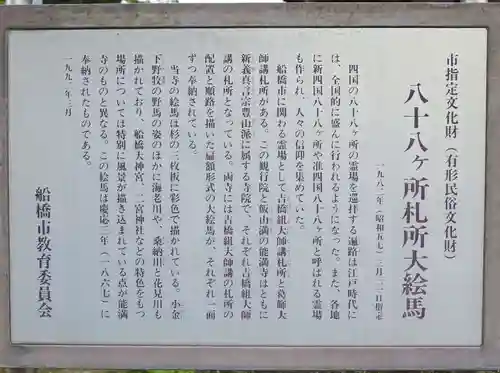 市指定文化財（有形民俗文化財）
八十八ヶ所札所大絵馬
一九八二年（昭和五七）三月二二日指定
四国の八十八ヶ所の霊場を巡拝する遍路は江戸時代に
は、全国的に盛んに行われるようになった。また、各地
に新四国八十八ヶ所や准四国八十八ヶ所と呼ばれる霊場
も作られ、人々の信仰を集めていた。
船橋市に関わる霊場として吉橋組大師講札所と葛飾大
師講札所がある。この観行院と飯山満の能満寺はともに
新義真言宗豊山派に属する寺院で、それぞれ吉橋組大師
講の札所となっている。両寺には吉橋組大師講の札所の
配置と順路を描いた扁額形式の大絵馬が、それぞれ一面
ずつ奉納されている。
当寺の絵馬は杉の三枚板に彩色で描かれている。小金
下野牧の野馬の姿のほかに海老川や、桑納川と花見川も
描かれており、船橋大神宮、二宮神社などの特色をもつ
場所については特別に風景が描き込まれている点が能満
寺のものと異なる。この絵馬は慶応三年（一八六七）に
奉納されたものである。
一九九一年三月
船橋市教育委員会